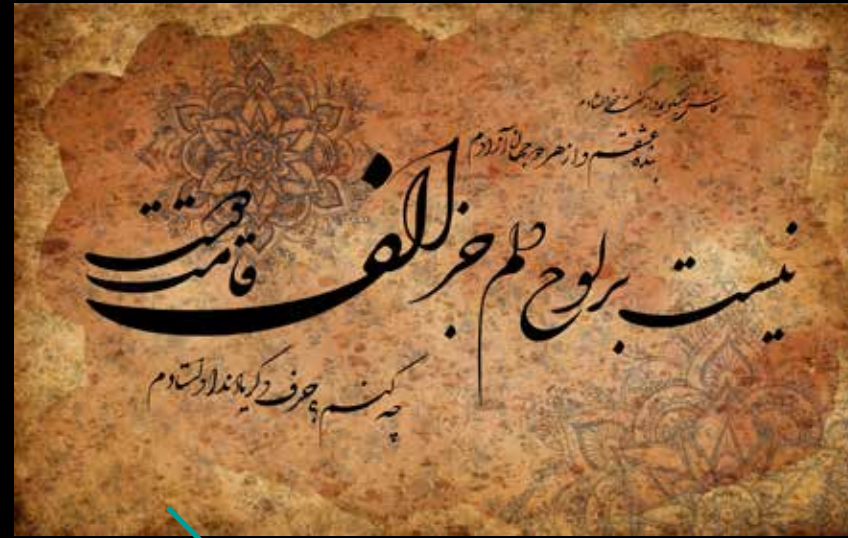 فاش میگویم و از گفته خود دلشادم
بنده عشقم و از هر دو جهان آزادم
نیست بر لوح دلم جز الف قامت دوست
چه کنم حرف دگر یاد نداد استادم